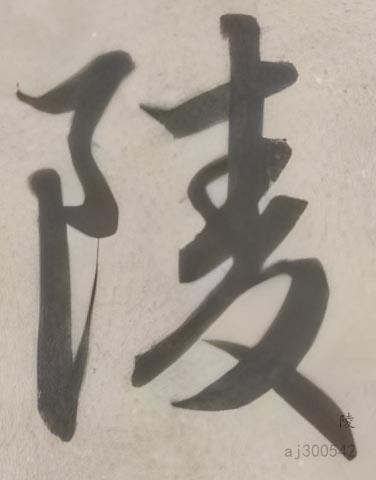 陵
陵
aj300542